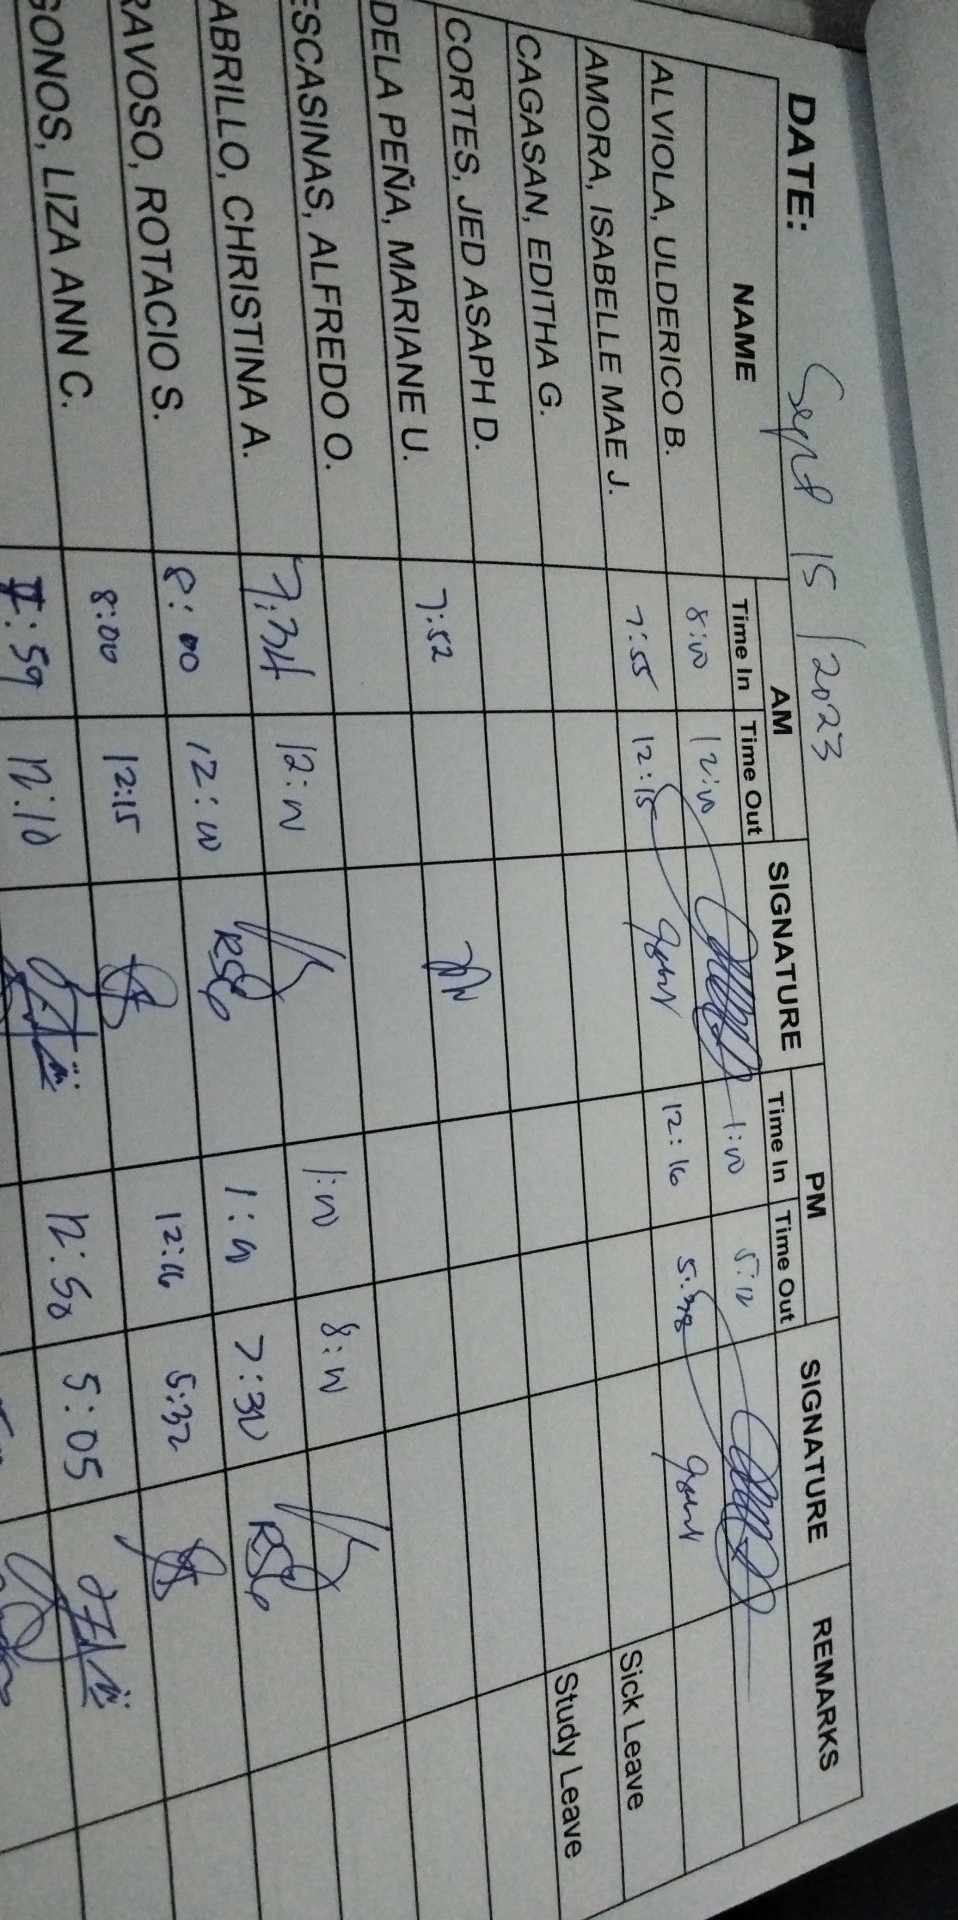 DATE: Sept 15 / 2023
NAME AM SIGNATURE PM SIGNATURE REMARKS
Time In Time Out Time In Time Out
ALVIOLA, ULDERICO B. 8:00 12:00 1:00 5:12
AMORA, ISABELLE MAE J. 7:55 12:15 12:16 5:38
CAGASAN, EDITHA G. Sick Leave
CORTES, JED ASAPH D. Study Leave
DELA PEÑA, MARIANE U. 7:52
ESCASINAS, ALFREDO O.
ABRILLO, CHRISTINA A. 7:34 12:00 1:00 8:00
RAVOSO, ROTACIO S. 8:00 12:00 1:00 7:30
GONOS, LIZA ANN C. 8:00 12:15 12:16 5:32
7:59 12:10 12:50 5:05